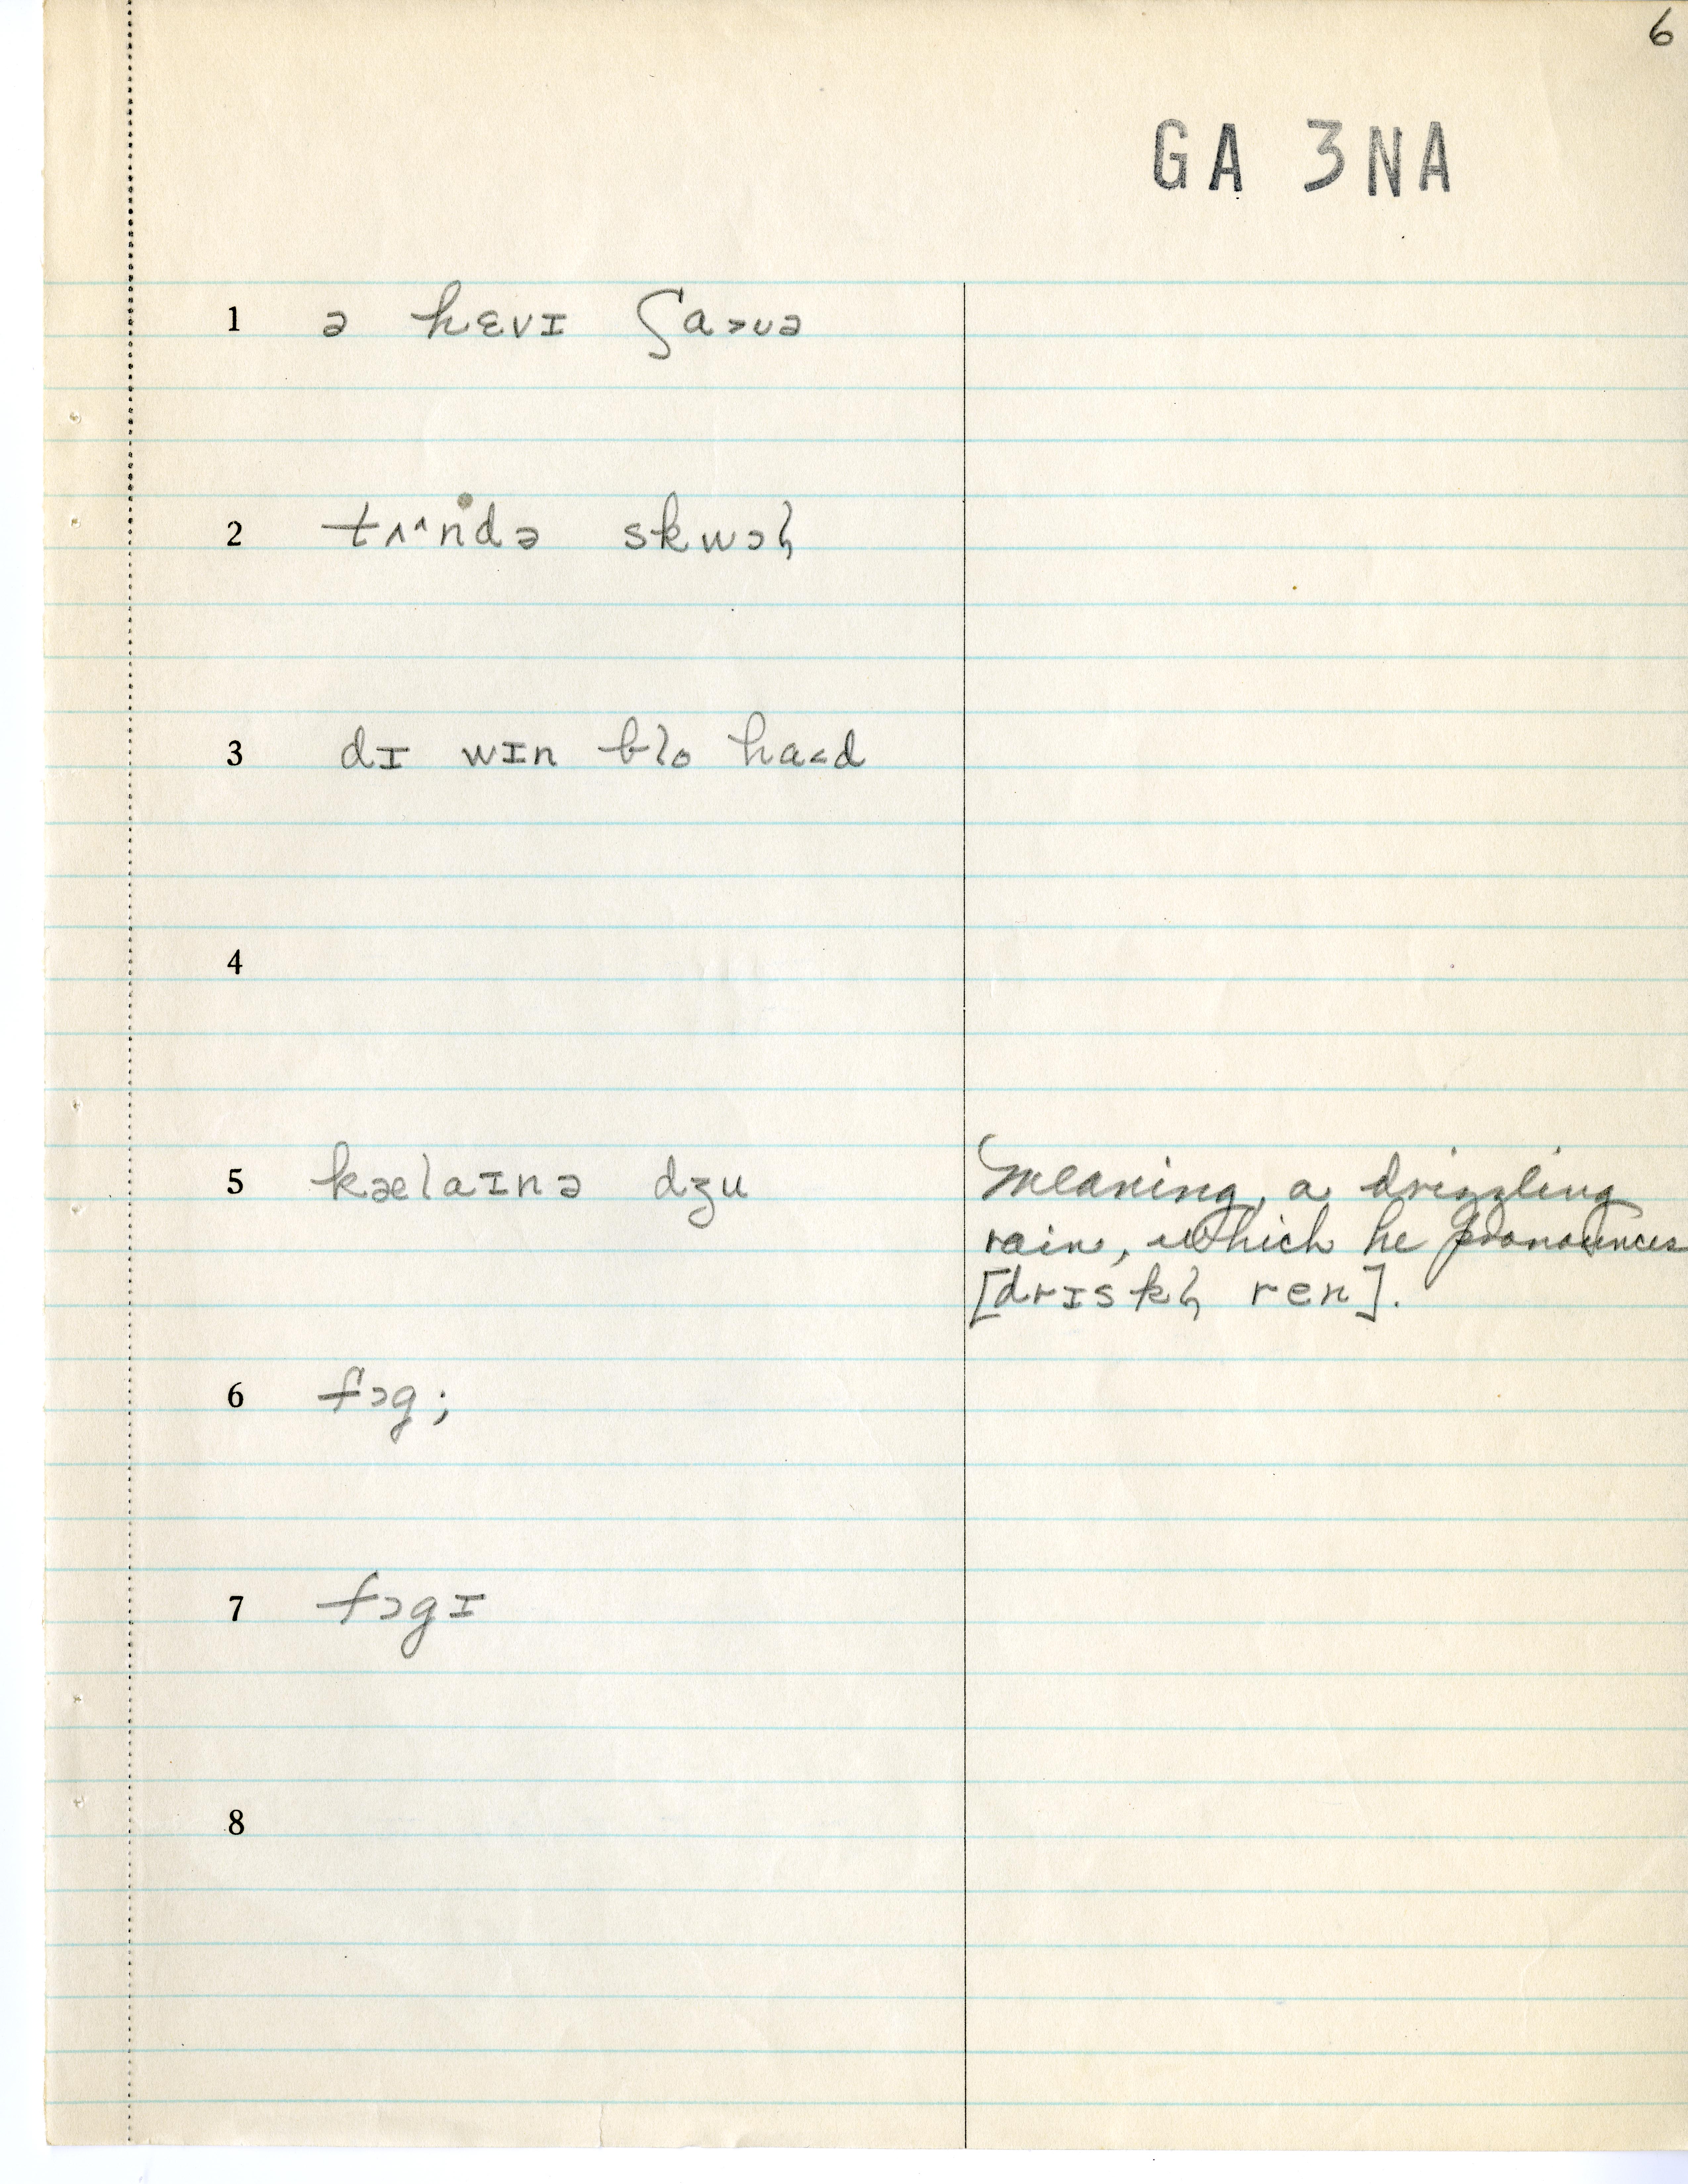 6
GA 3NA
1 ə hɛvɪ ʃa˃uə
2 tʌ^ndə skwɔl̩
3 dɪ wɪn blo ha˂d
4
5 kælaɪnə dʒu
Meaning, a drizzling
rain, which he pronounces
[drɪskl̩ ren].
6 fɔg;
7 fɔgɪ
8